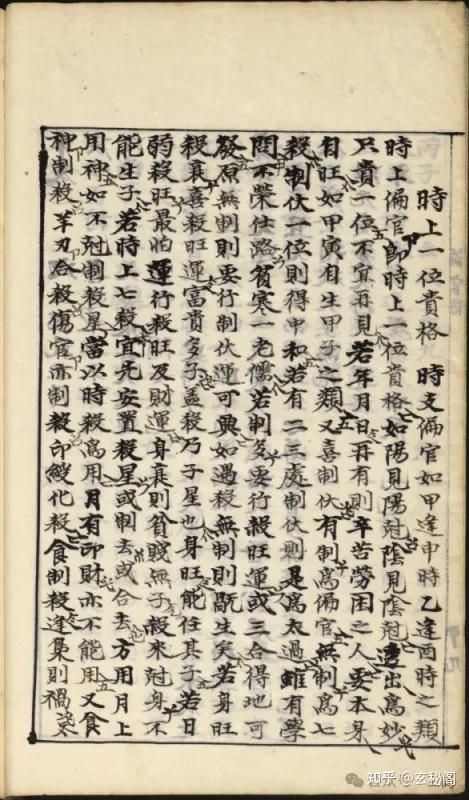 時上一位貴格　時支偏官如甲逢申時乙逢酉時之類
時上偏官即時上一位貴格如陽見陽尅陰見陰尅透出為妙
只貴一位不宜再見若年月日再有則辛苦勞困之人要本身
自旺如甲寅自生甲子之類又喜制伏有制為偏官無制為七
殺制伏一位則得中和若有二三處制伏則是為太過雖有學
問不榮仕路貧寒一老儒若制多要行殺旺運或三合得地可
發原無制則要行制伏運可興如遇殺無制則既生矣若身旺
殺衰喜殺旺運富貴多子盖殺乃子星也身旺能任其子若日
弱殺旺最怕運行殺旺及財運身衰則貧賤無子殺來尅身不
能生子若時上七殺宜先安置殺星或制去或合去方用月上
用神如不尅制殺星當以時殺為用月有印財亦不能用又食
神制殺羊刃合殺傷官亦制殺印綬化殺食制殺逢梟則禍
知乎 @玄秘阁